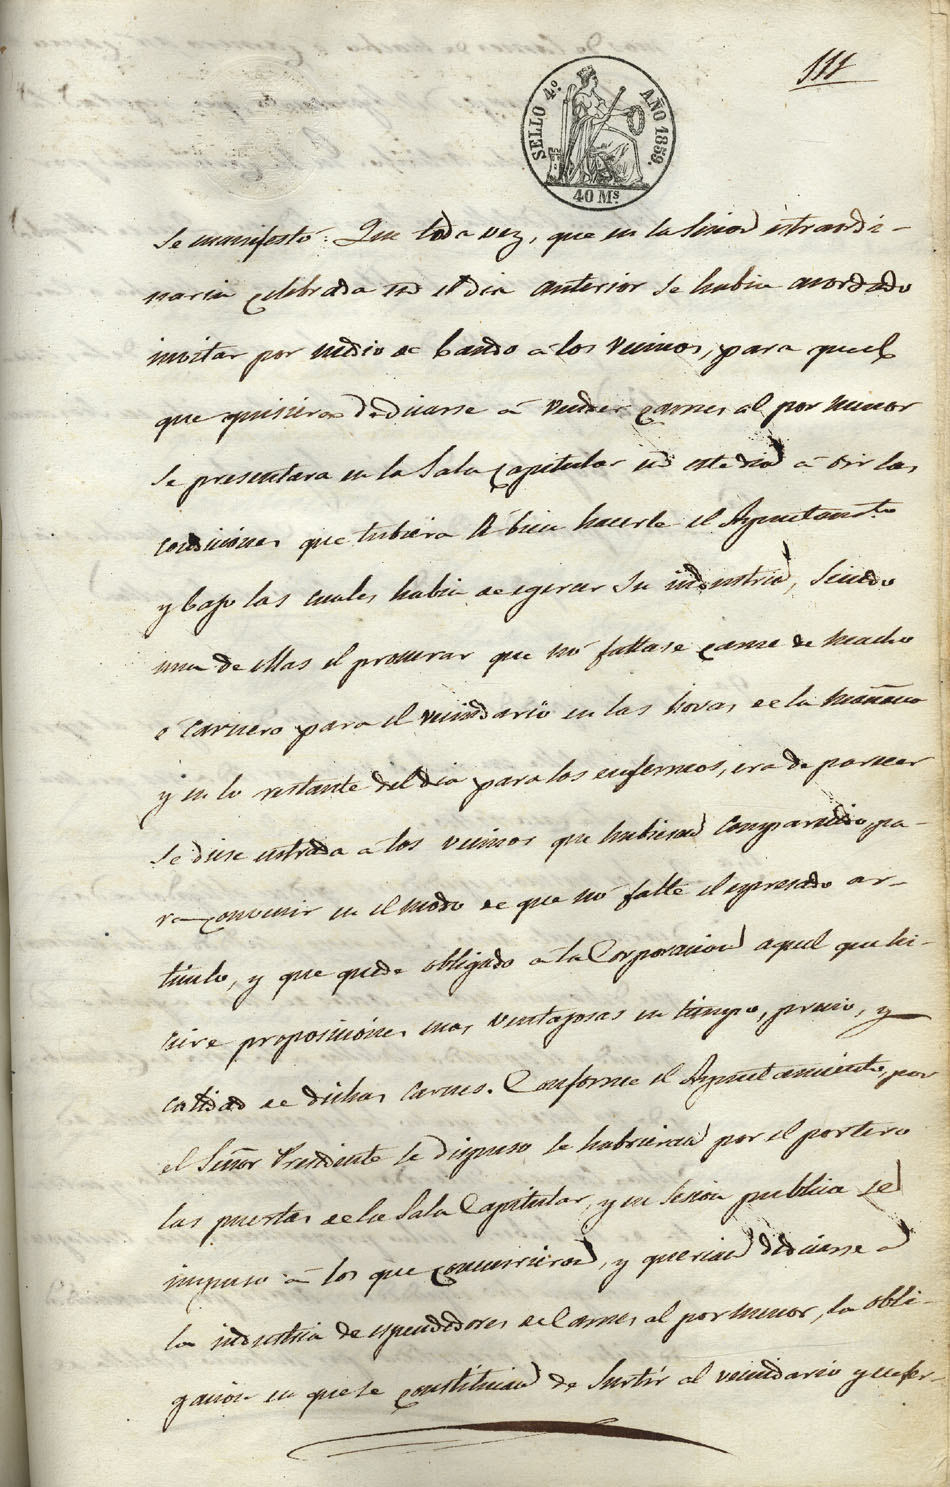 111
SELLO 4.º AÑO 1859.
40 Ms.
se manifestó: Que toda vez, que en la sesion estraordi-
naria celebrada en el dia anterior se habia acordado
invitar por medio de bando á los vecinos, para que el
que quisiera dedicarse á vender carnes al por menor
se presentara en la Sala Capitular en este dia á oir las
condiciones que tubiera á bien hacerle el Ayuntamto.
y bajo las cuales habia de egercer su industria, siendo
una de ellas el procurar que nó faltase carne de macho
ó carnero para el vecindario en las horas de la mañana
y en lo restante del dia para los enfermos, era de parecer
se diese entrada á los vecinos que hubiesen comparecido, pa-
ra convenir en el modo de que nó falte el espresado ar-
ticulo, y que quede obligado á la Corporacion aquel que hi-
ciere proposiciones mas ventajosas en tiempo, precio, y
calidad de dichas carnes. Conforme el Ayuntamiento, por
el Señor Presidente se dispuso se habrieran por el portero
las puertas de la Sala Capitular, y en sesion publica se
impuso á los que concurrieron, y querian dedicarse á
la industria de espendedores de Carnes al por menor, la obli-
gacion en que se constituian de surtir al vecindario y enfer-